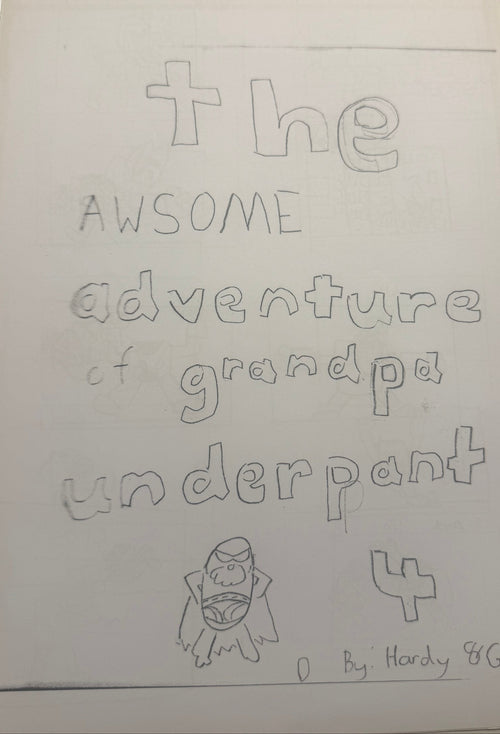 the
AWSOME
adventure
of grandpa
underpant
4
By: Hardy & G